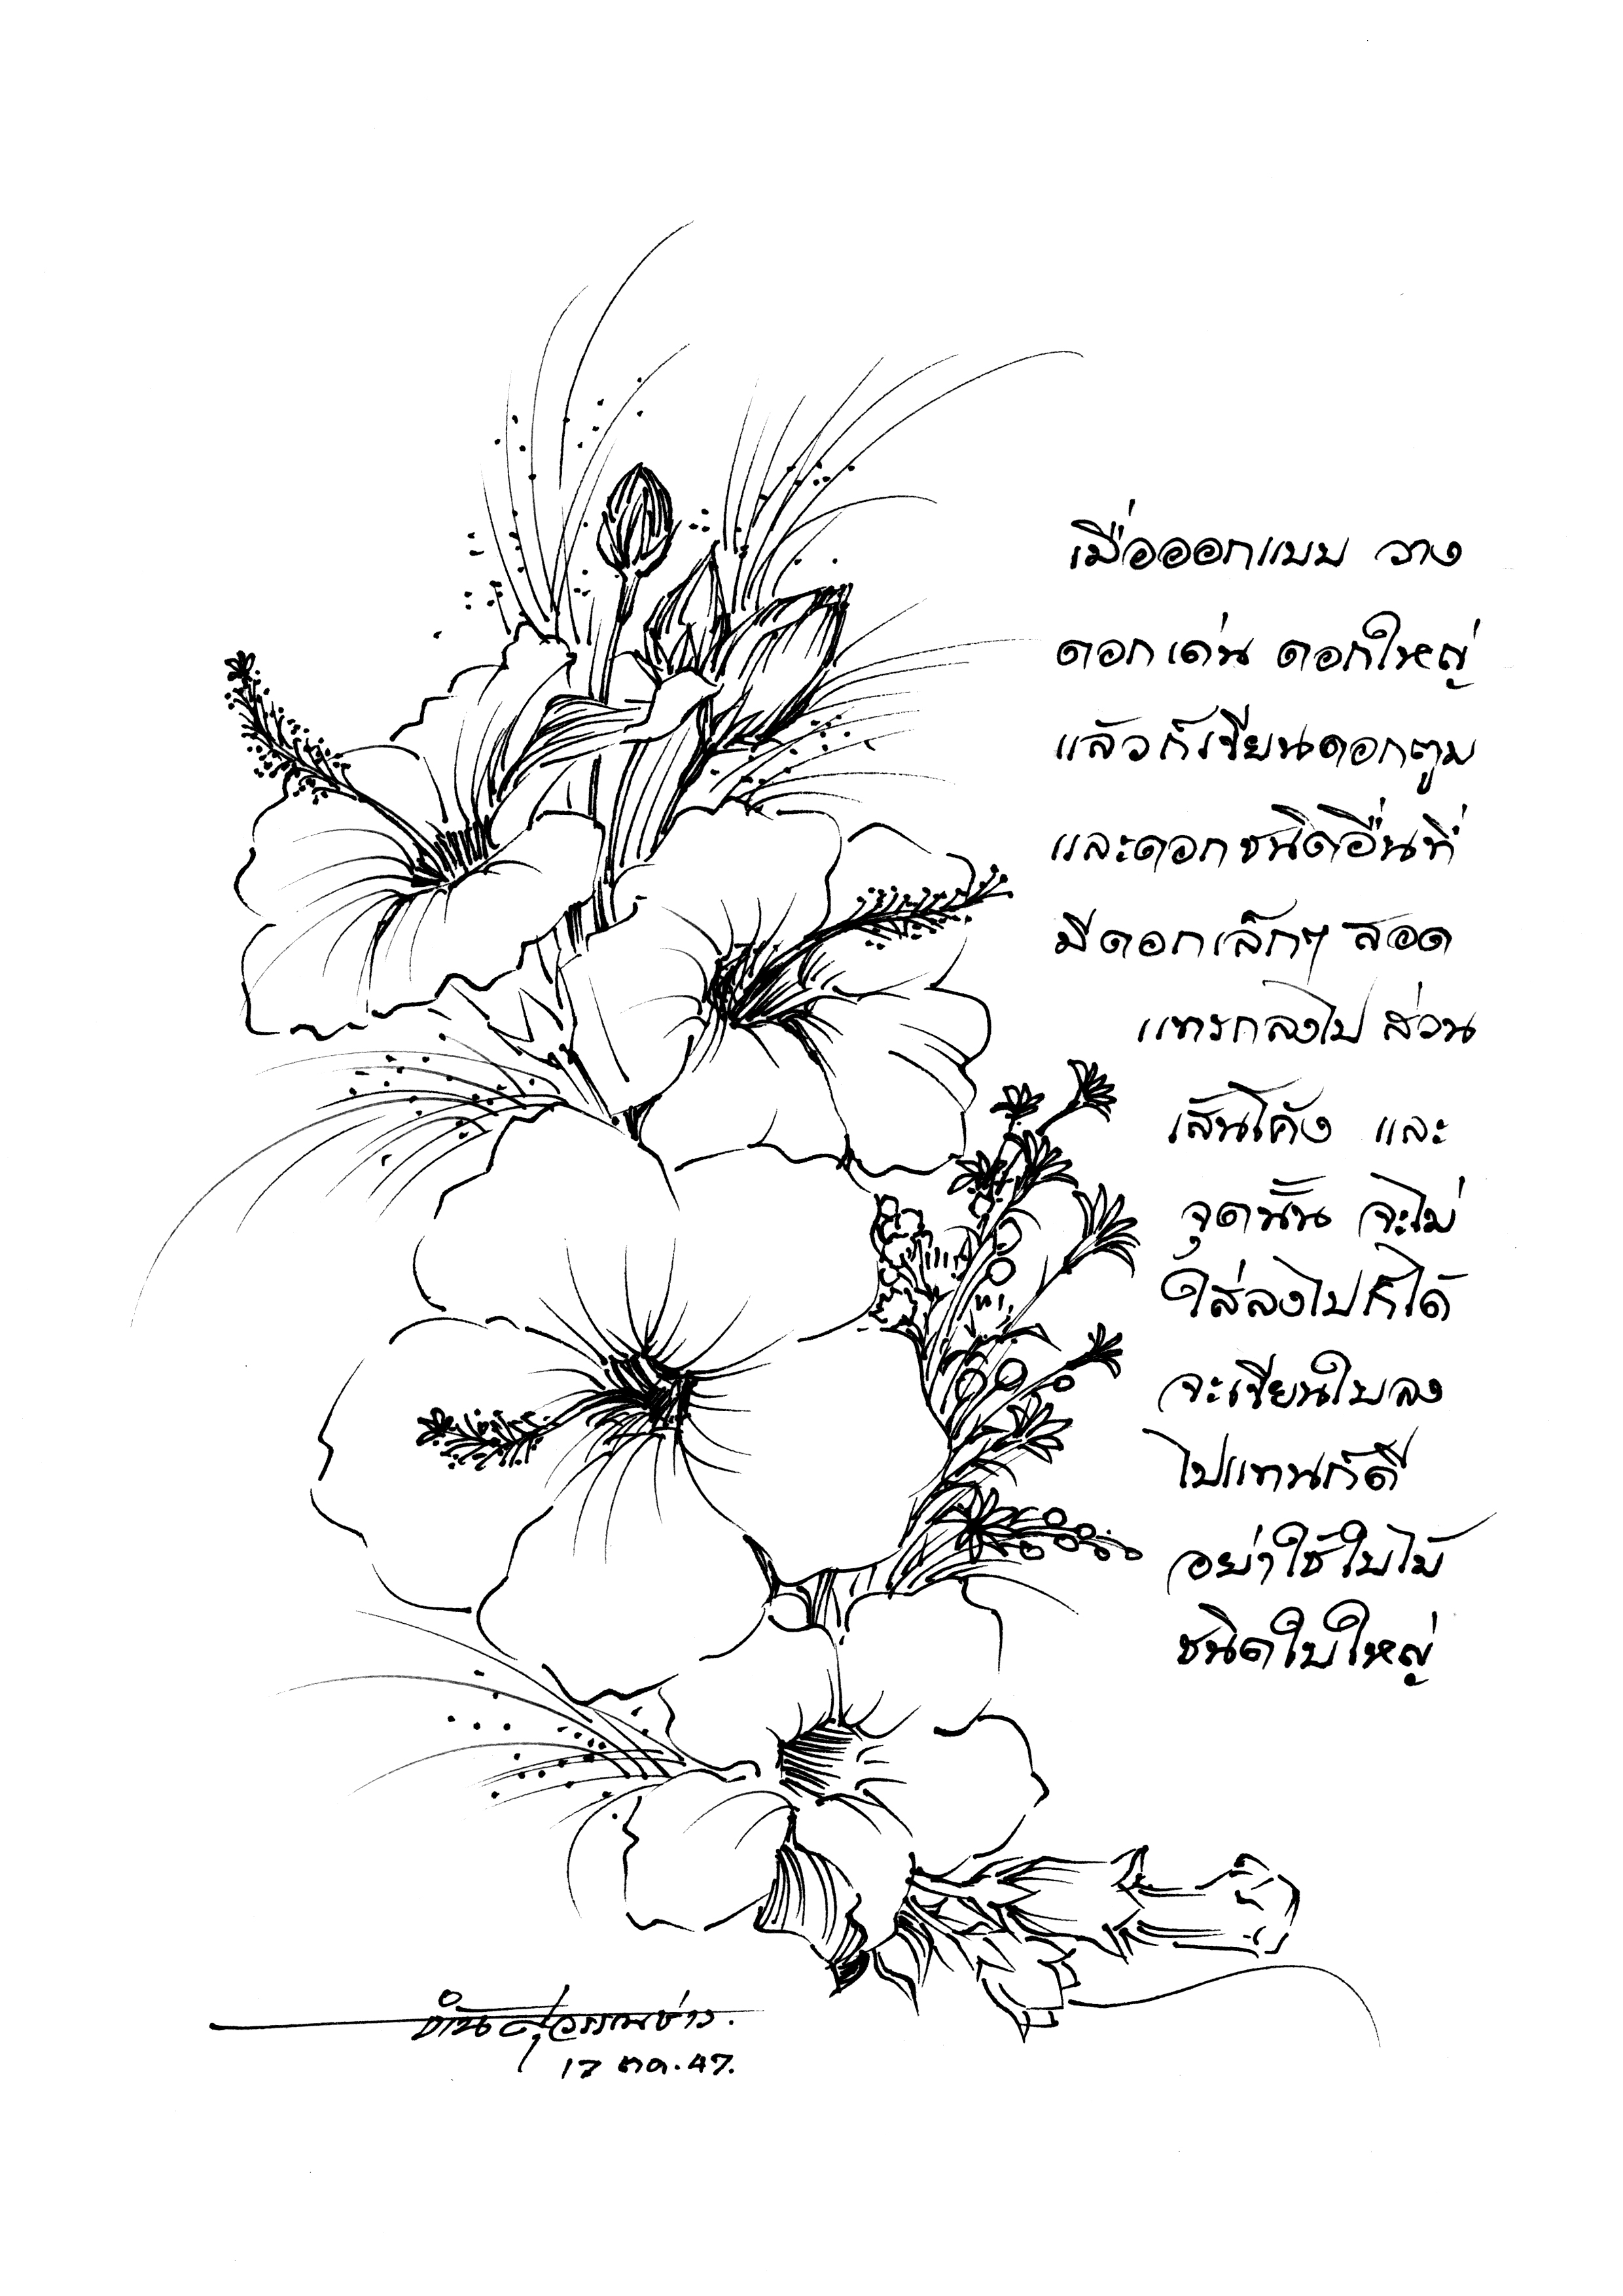 เมื่อออกแบบ วาง
ดอกเด่น ดอกใหญ่
แล้วก็เขียนดอกตูม
และดอกชนิดอื่นที่
มีดอกเล็กๆ สอด
แทรกลงไป ส่วน
เส้นโค้ง และ
จุดนั้น จะไม่
ใส่ลงไปก็ได้
จะเขียนใบลง
ไปแทนก็ดี
อย่าใช้ใบไม้
ชนิดใบใหญ่
17 ตค. 47.